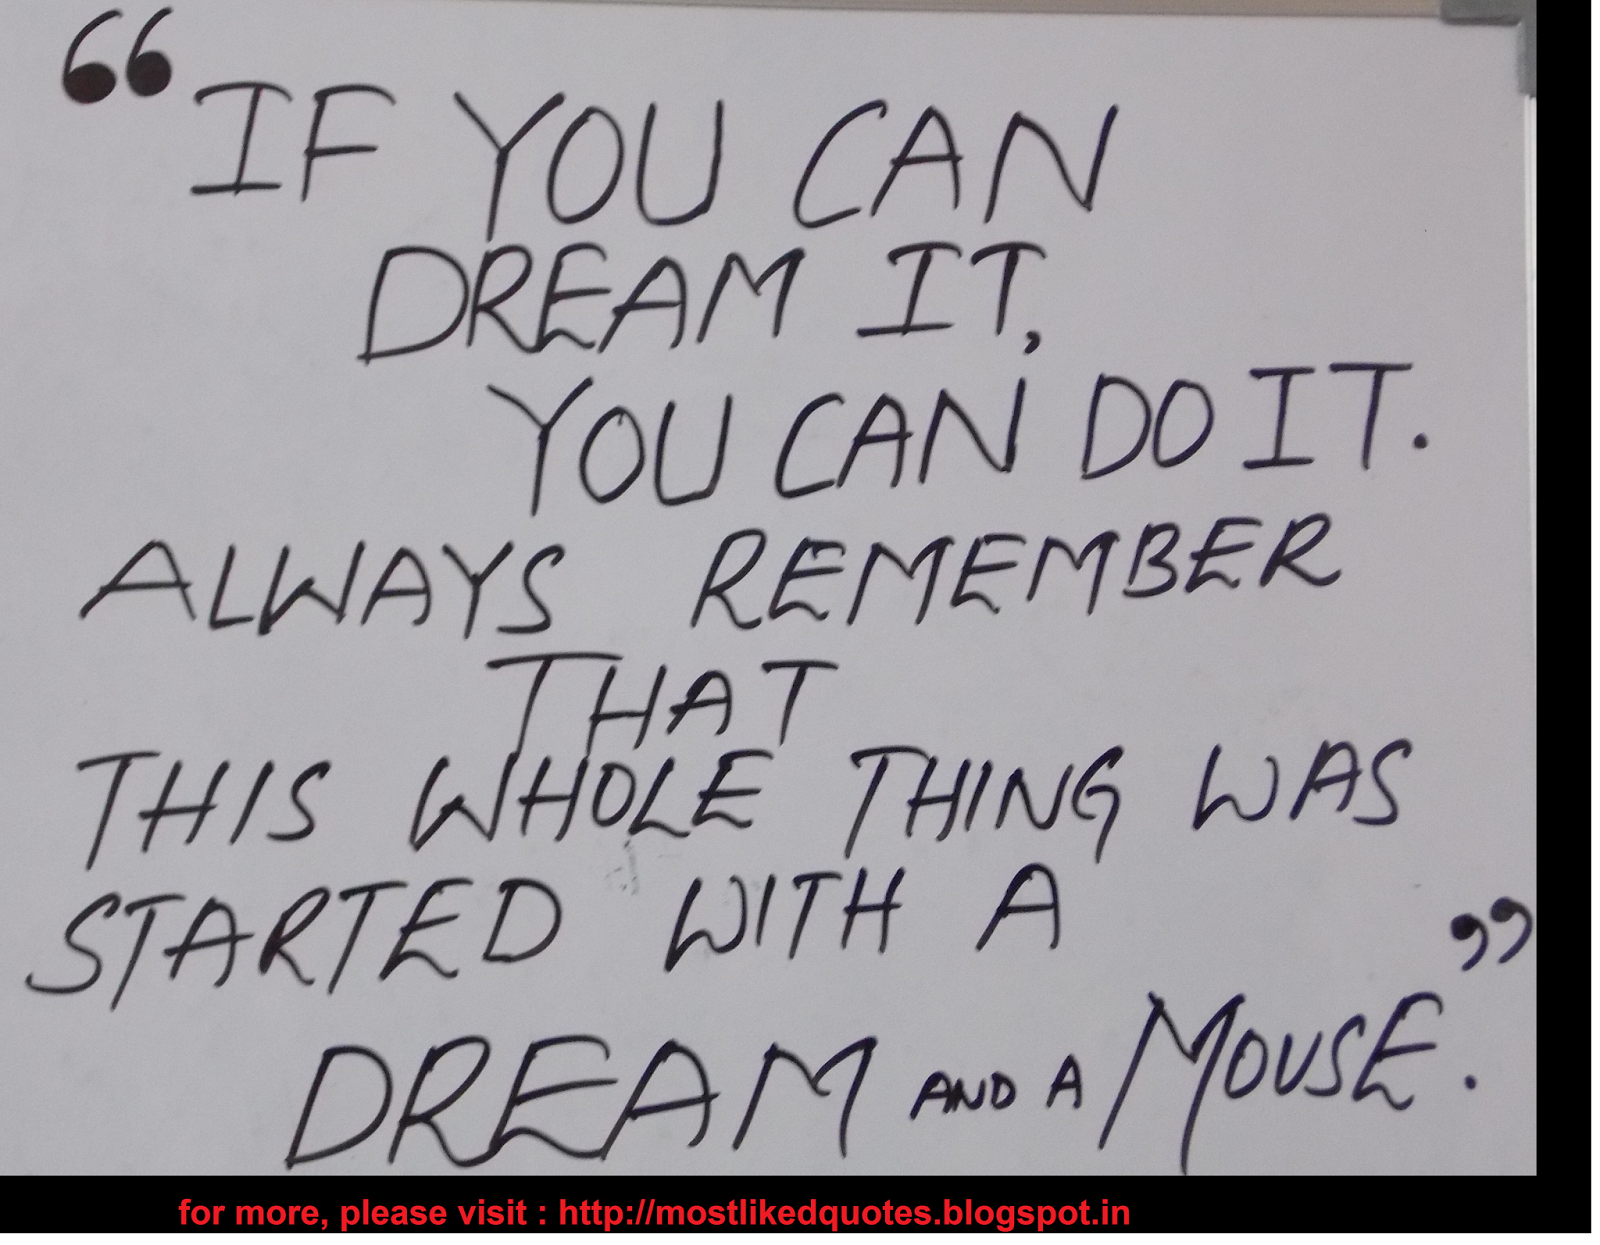 “IF YOU CAN
DREAM IT,
YOU CAN DO IT.
ALWAYS REMEMBER
THAT
THIS WHOLE THING WAS
STARTED WITH A
DREAM AND A MOUSE.”
for more, please visit : http://mostlikedquotes.blogspot.in